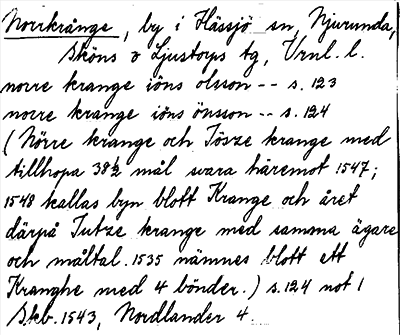 Norrkrånge, by i Hässjö sn, Njurunda,
Sköns o Ljustorps tg, Vrnl. l.
norre krange iöns olsson -- s. 123
norre krange iöns önsson -- s. 124
(Nörre krange och Tösze krange med
tillhopa 38½ mål svara häremot 1547;
1548 kallas byn blott Krange och året
därpå Tutze krange med samma ägare
och måltal. 1535 nämnes blott ett
Kranghe med 4 bönder.) s. 124 not 1
Skb. 1543, Nordlander 4.